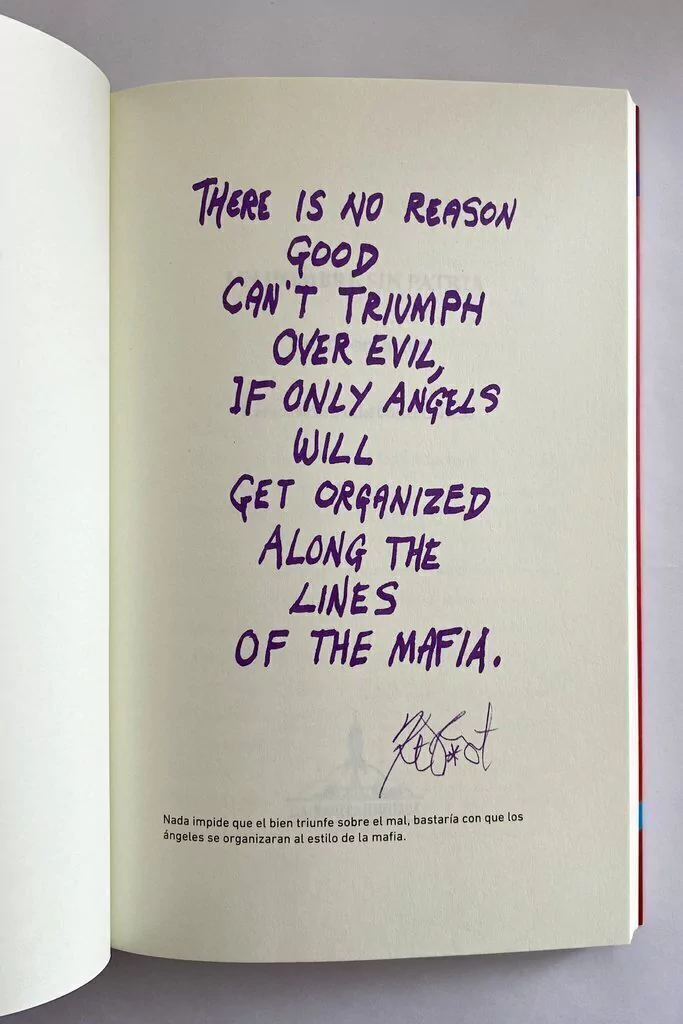 THERE IS NO REASON
GOOD
CAN'T TRIUMPH
OVER EVIL,
IF ONLY ANGELS
WILL
GET ORGANIZED
ALONG THE
LINES
OF THE MAFIA.
Nada impide que el bien triunfe sobre el mal, bastaría con que los
ángeles se organizaran al estilo de la mafia.